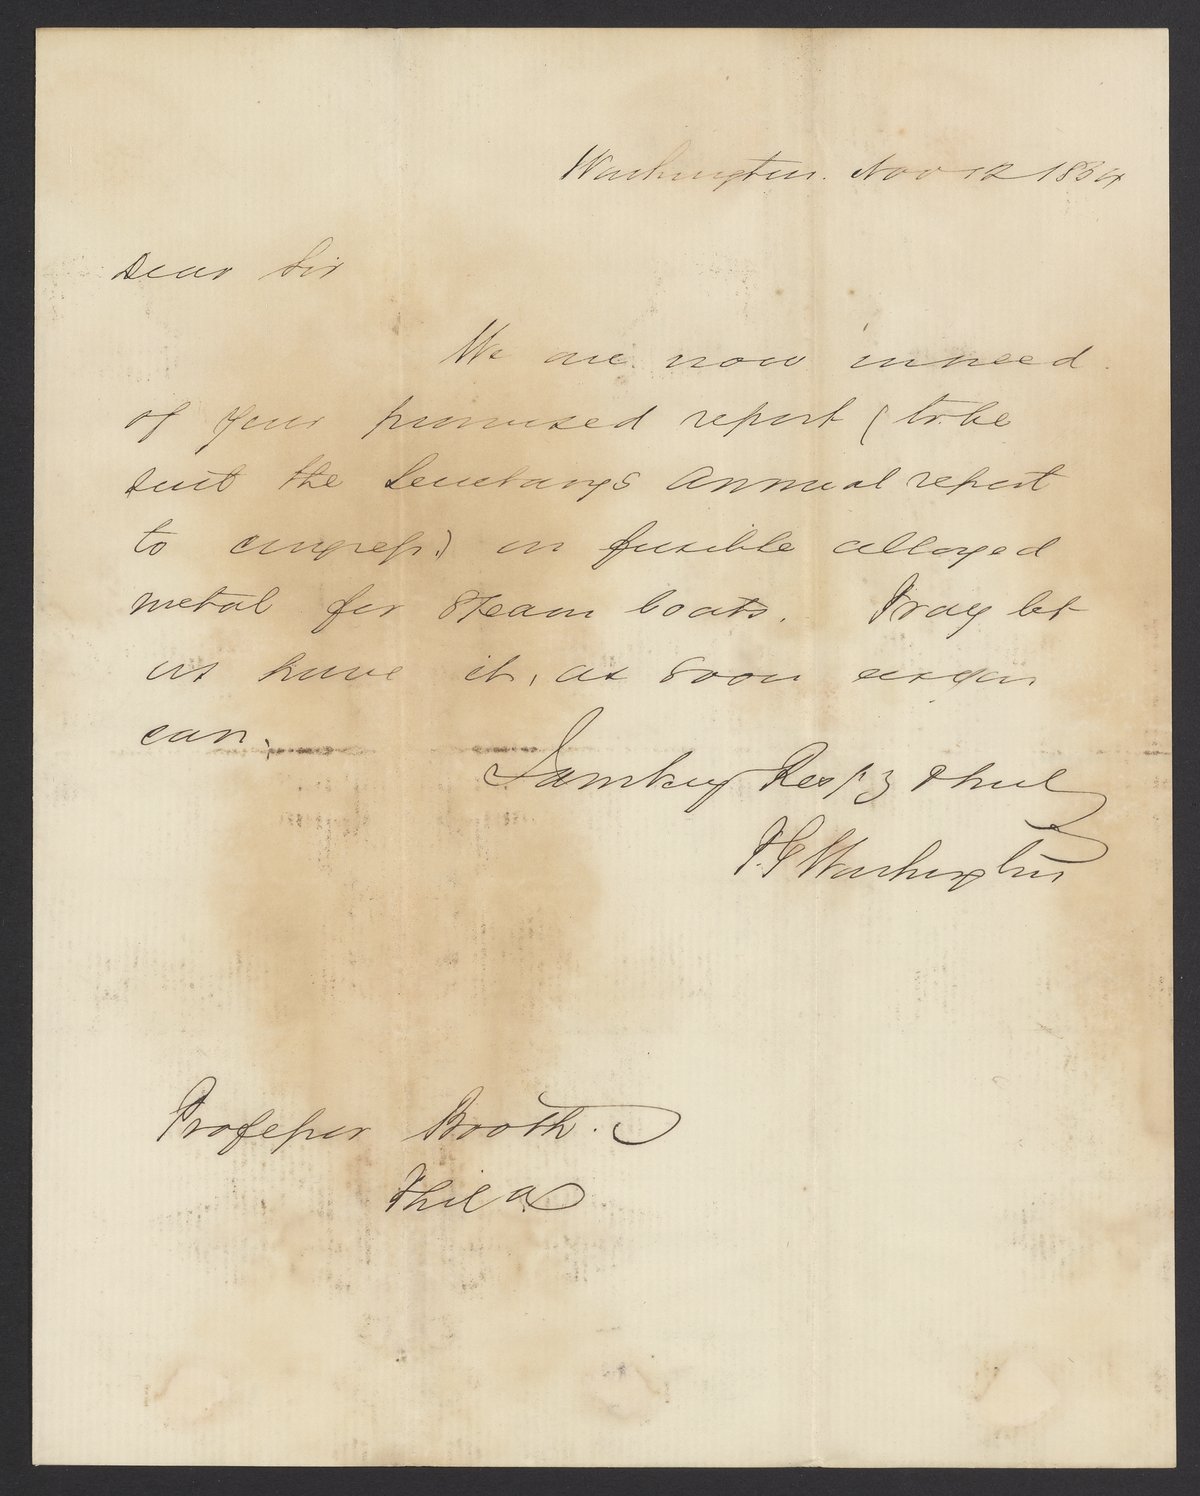 Washington. Nov 12 1854
Dear Sir
We are now in need
of your promised report (to be
suit the Secretarys annual report
to congress) on fusible alloyed
metal for Steam boats. Pray let
us have it, as soon as you
can.
I am very Resp'y &
P. G. Washington
Professor Booth.
Phila